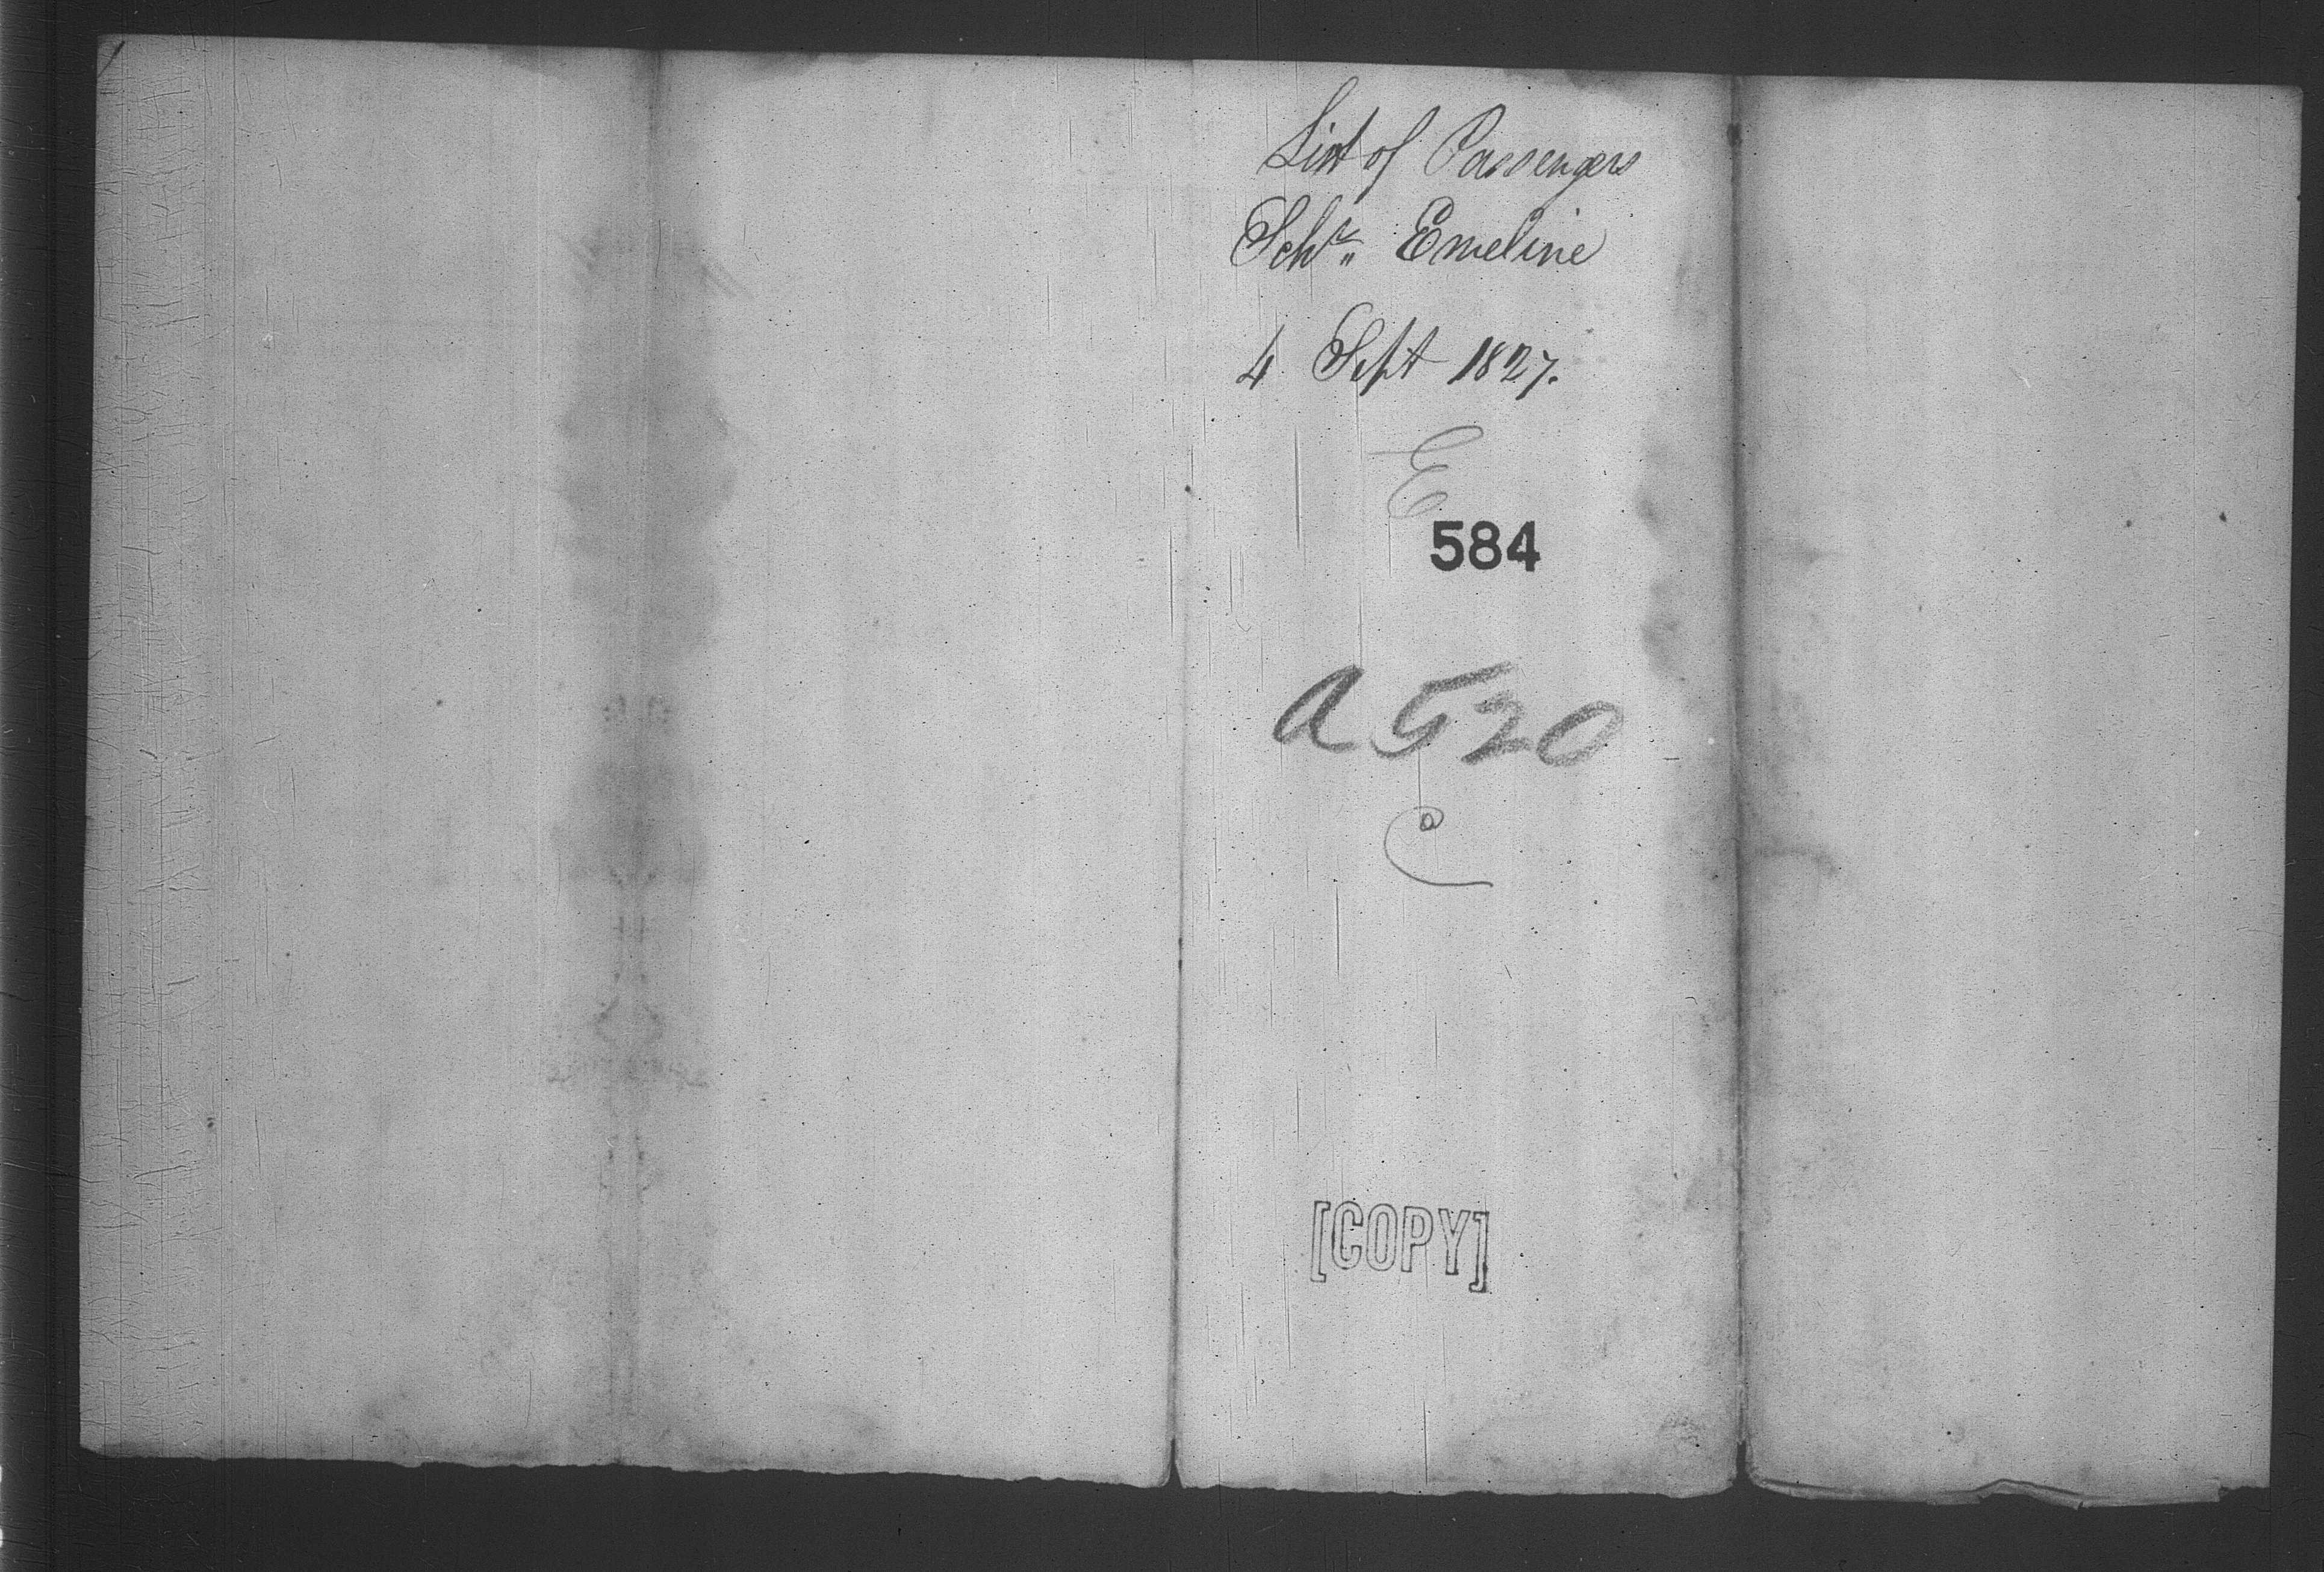 List of Passengers
Schr. Emeline
4 Sept 1827.
E
584
A 520
C
[COPY]